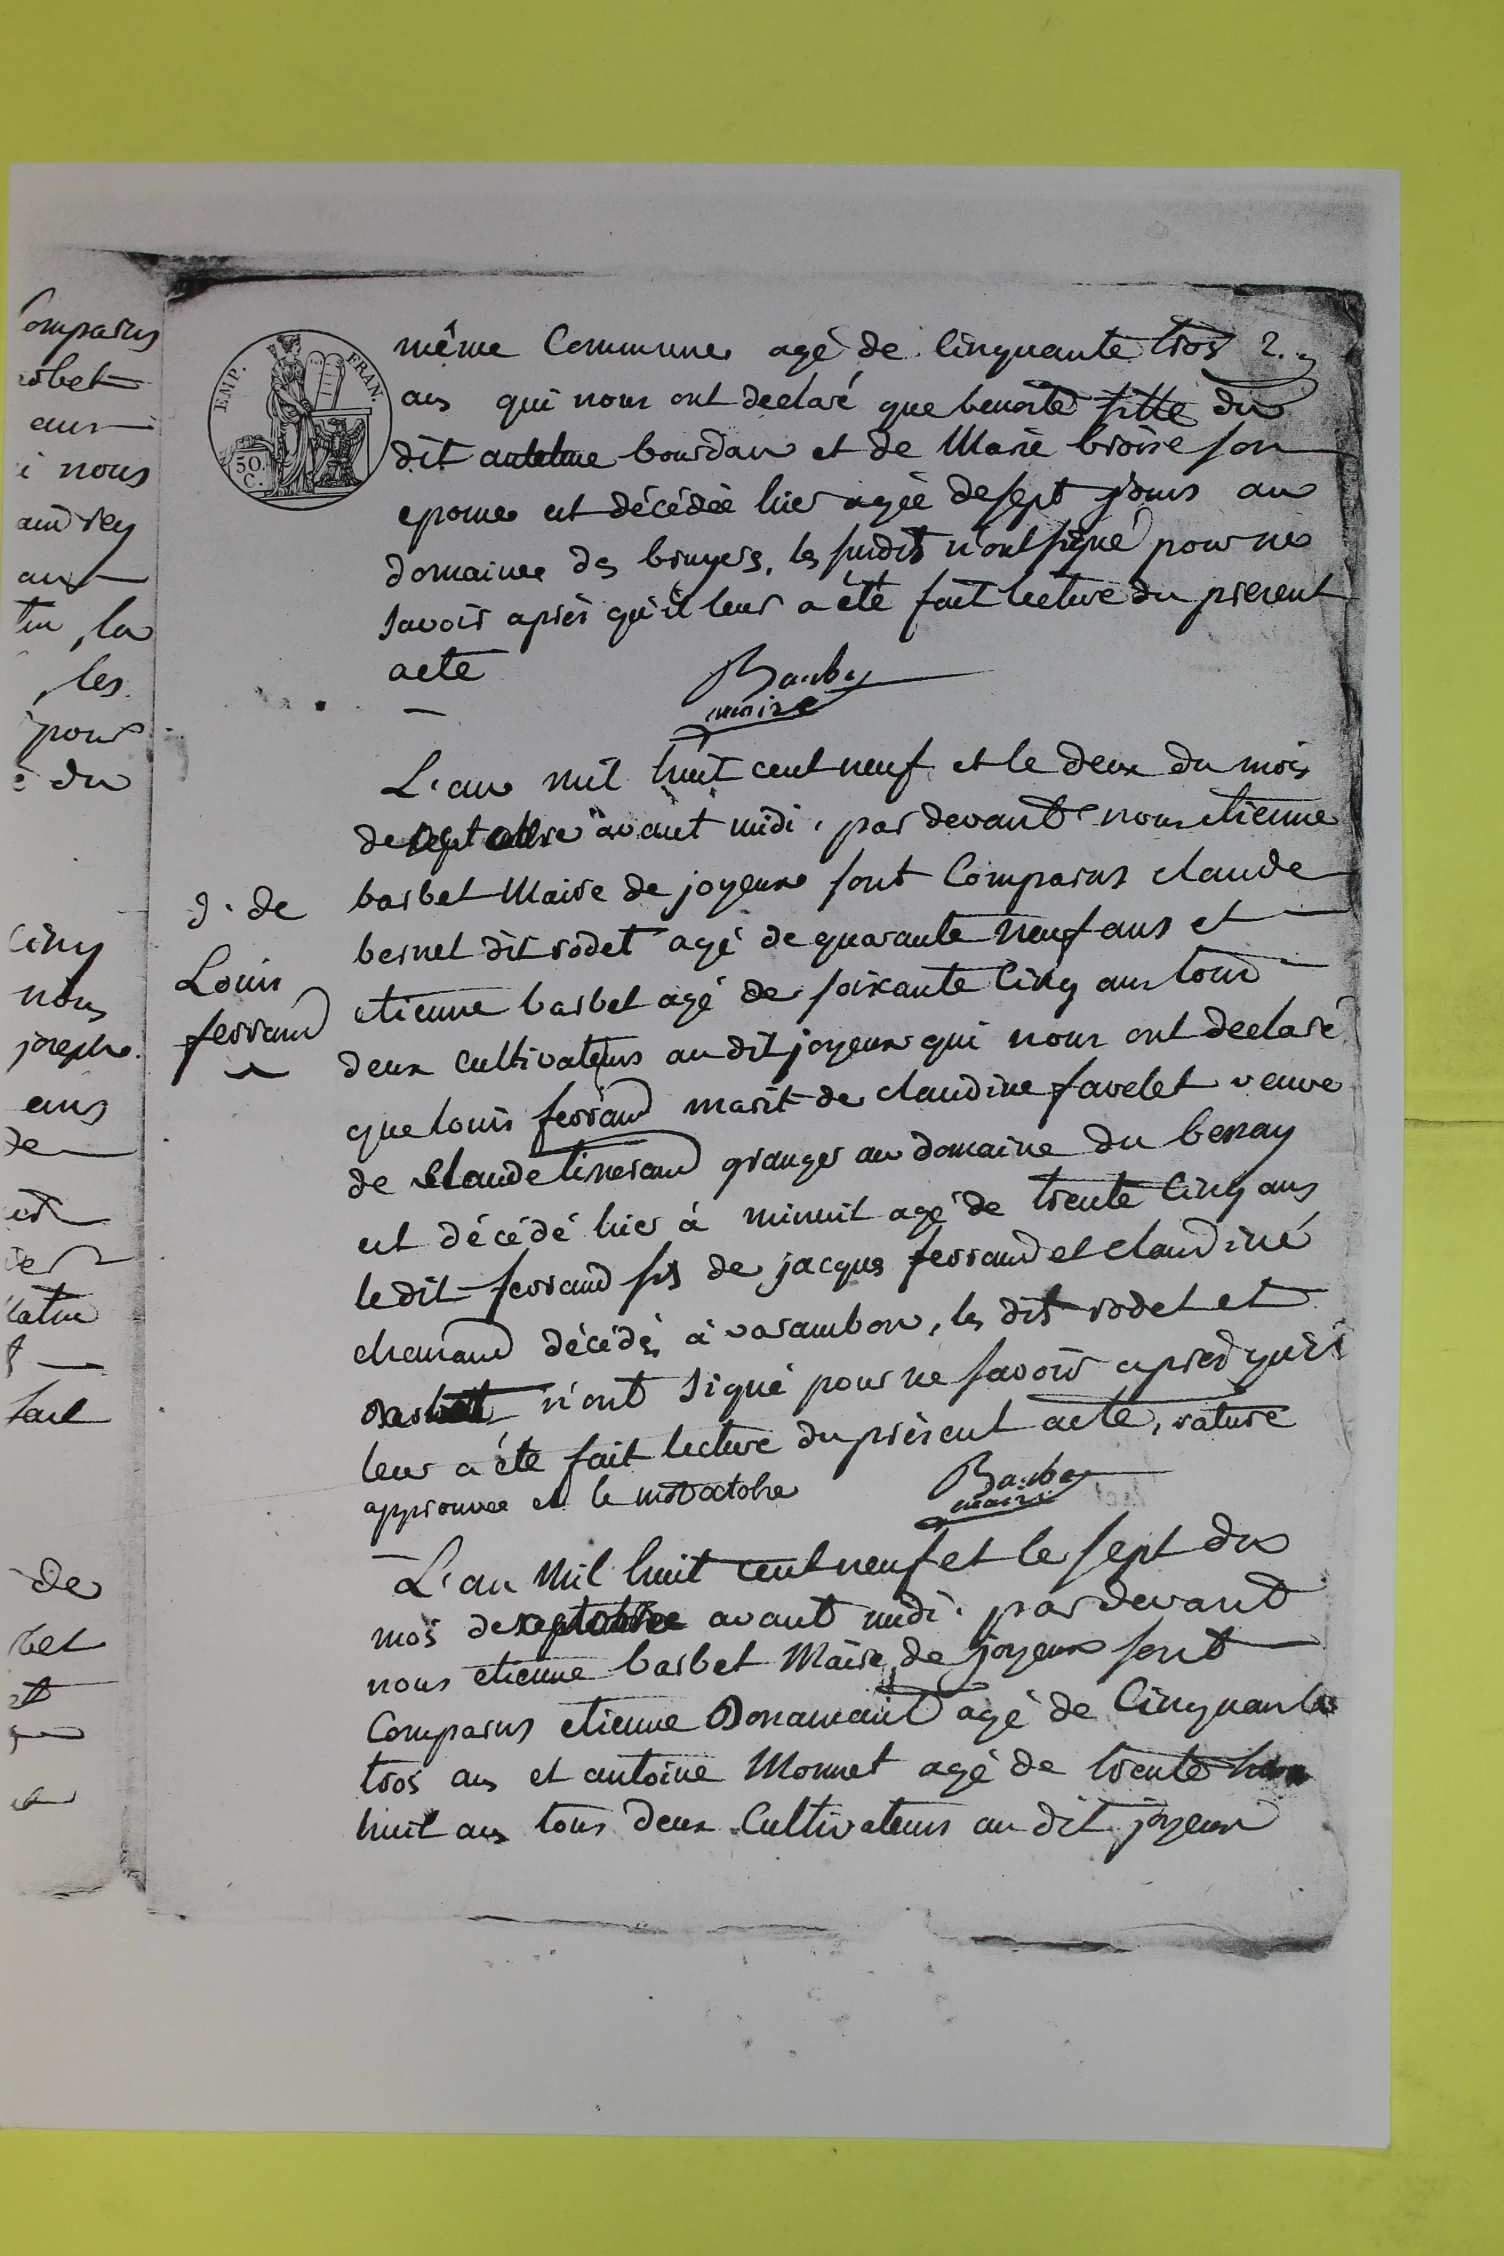 omparus
rbet
ans
i nous
aud rey
an
tin, la
, les
pour
e du
Cinq
nous
joseph.
ans
de
fait
de
bet
EMP. FRAN.
50.
C.
même Commune agé de Cinquante trois 2.
ans qui nous ont declaré que benoite fille du
dit antelme bourdan et de Marie broise son
epouse est décédée hier agée de sept jours au
domaine des bruyers, les susdits n'ont signé pour ne
savoir aprés qu'il leur a été fait lecture du present
acte
Barbet
maire
d. de
Louis
ferrand
L'an mil huit cent neuf et le deux du mois
de octobre avant midi, par devant nous etienne
barbet Maire de joyeux sont Comparus claude
bernet dit rodet agé de quarante neuf ans et
etienne barbet agé de soixante Cinq ans tous
deux Cultivateurs au dit joyeux qui nous ont declaré
que louis ferrand marit de claudine favelet veuve
de Claude granger au domaine du
est décédé hier à minuit agé de trente Cinq ans
le dit ferrand fils de jacques ferrand et claudine
décédés à varambon, les dits rodet et
barbet n'ont signé pour ne savoir apres qu'il
leur a été fait lecture du présent acte, rature
approuvee et le mot octobre
Barbet
maire
L'an Mil huit cent neuf et le sept du
mois de octobre avant midi, par devant
nous etienne barbet Maire de joyeux sont
Comparus etienne agé de Cinquante
trois ans et antoine Monnet agé de trente
huit ans tous deux Cultivateurs au dit joyeux